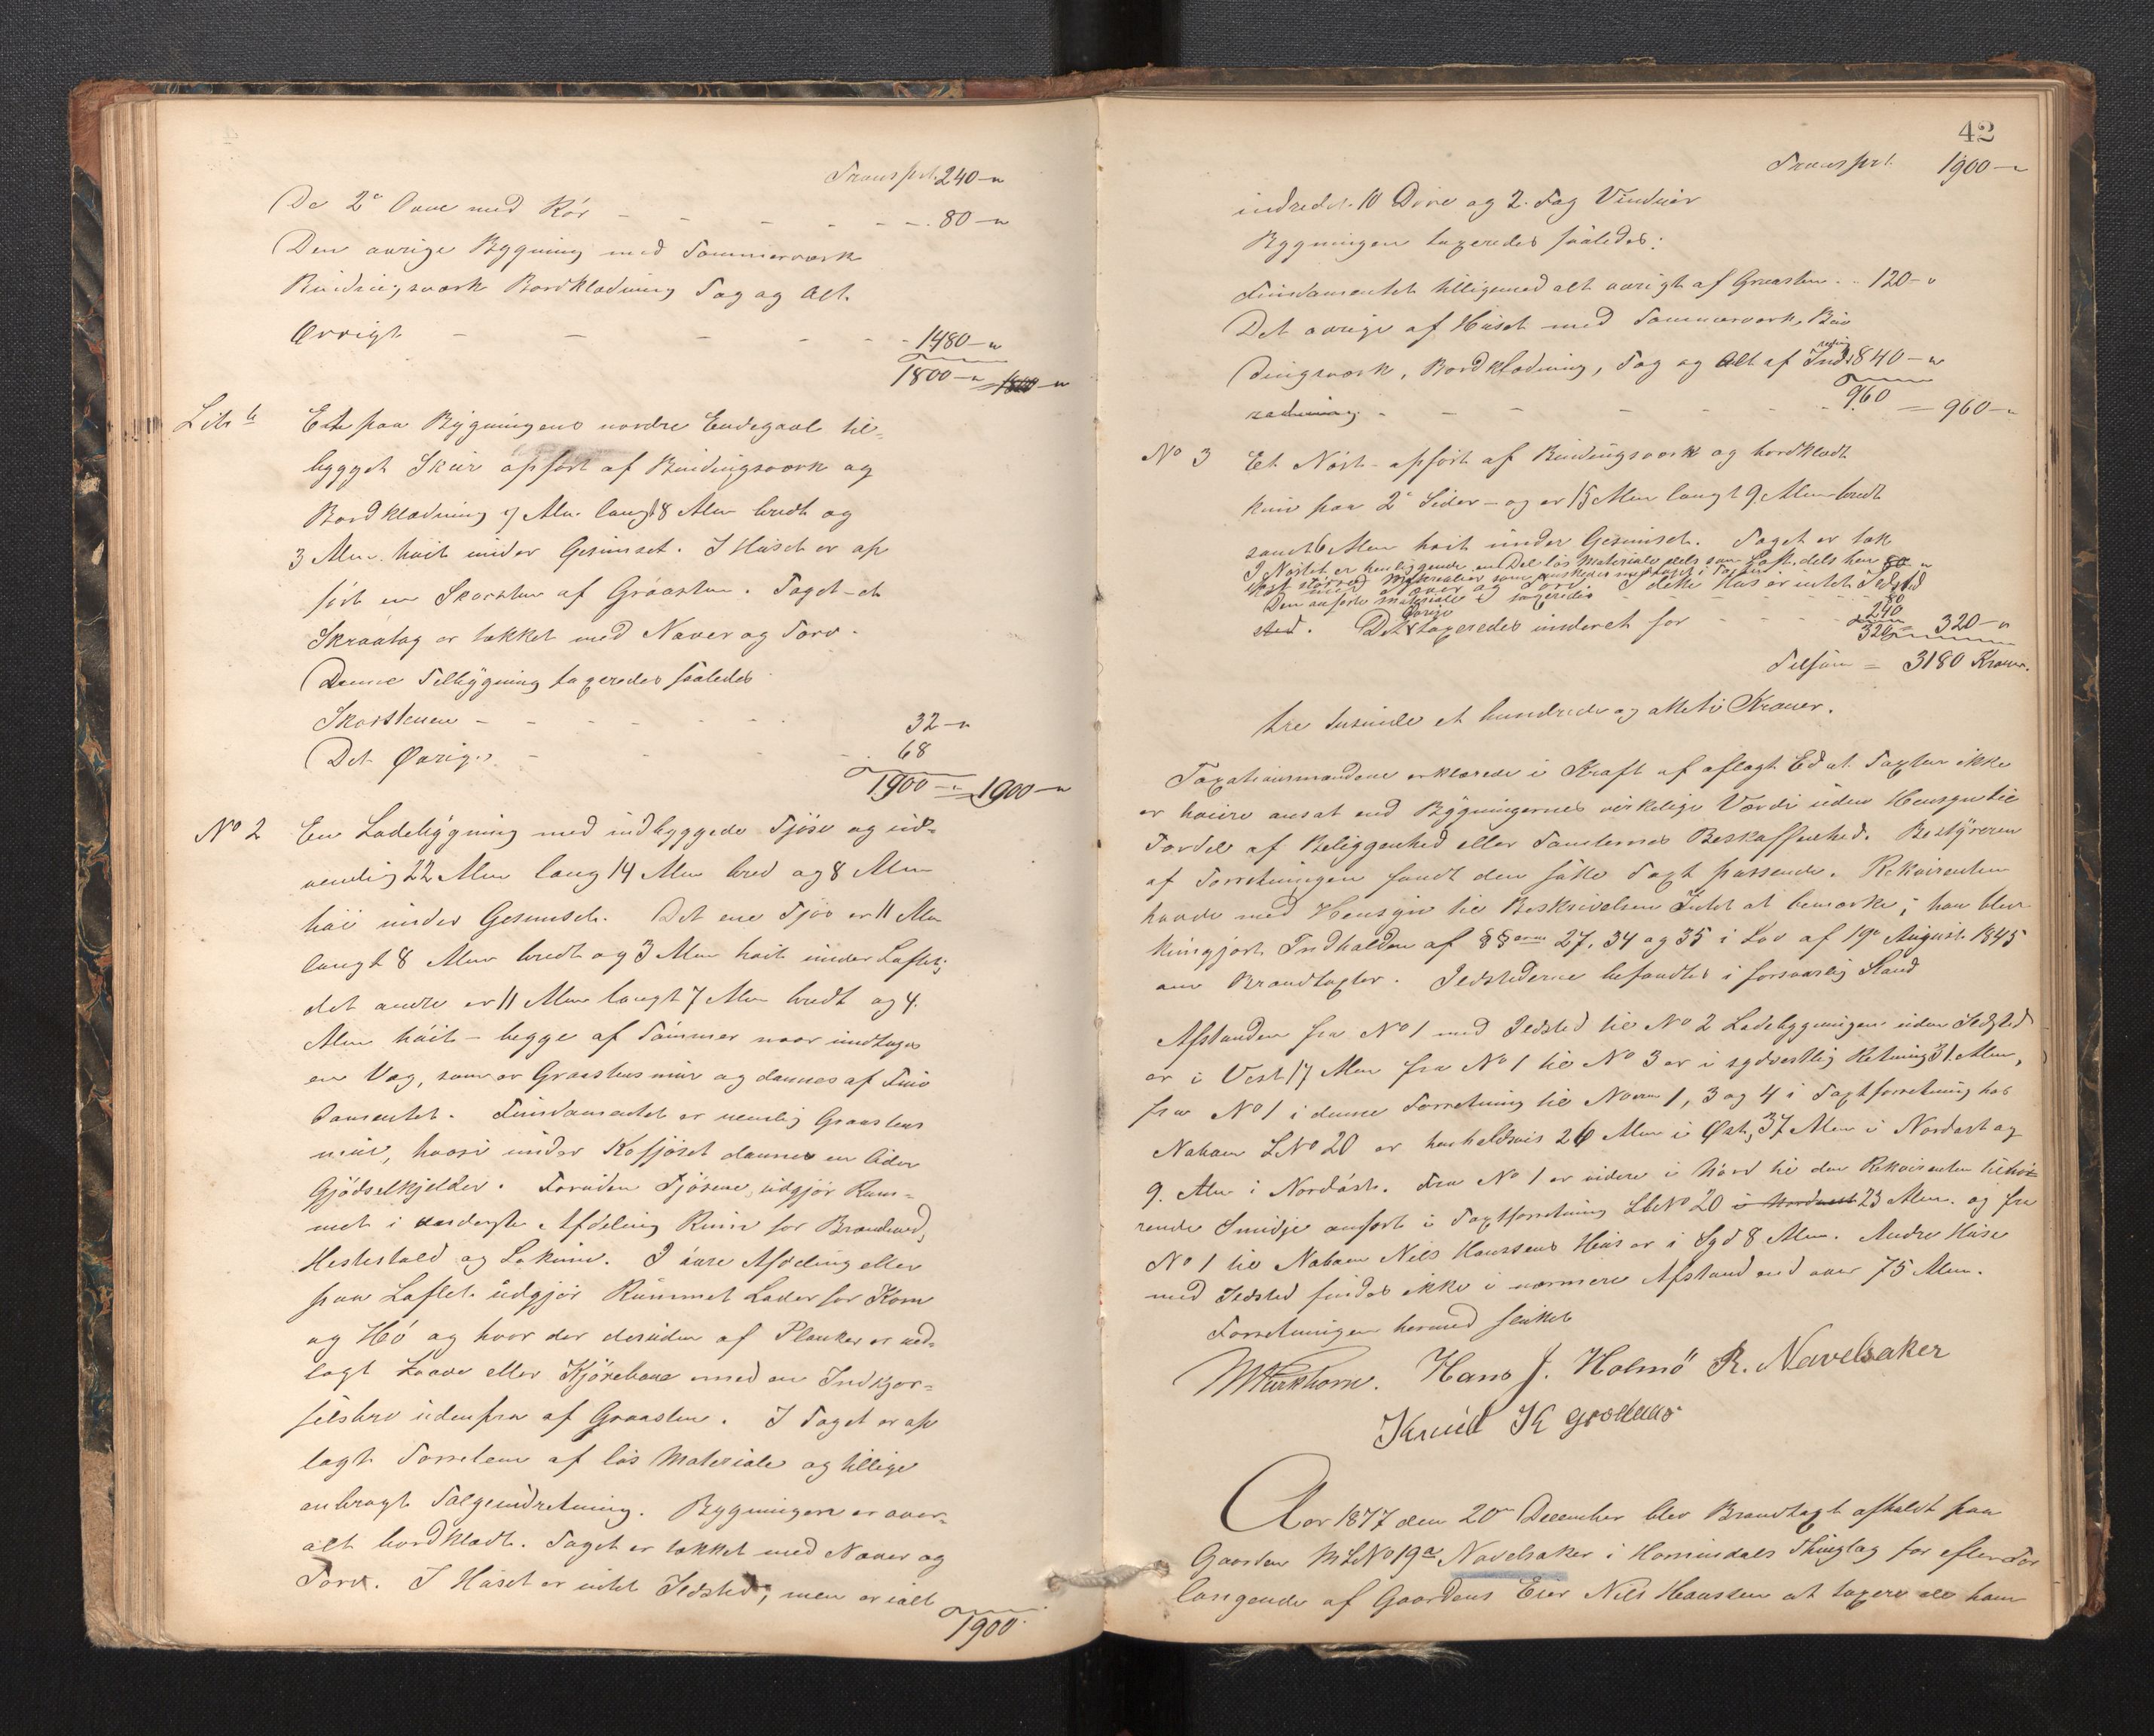 Transprt. 240 – "
De 2de Ovne med Rör - - - - - 80 – "
Den øvrige Bygning med Tømmerværk
Bindingsværk Bordklædning Tag og Alt
Øvrigt - - - - - 1480 – "
1800 – " 1800 – "
Litr b Et paa Bygningens nordre Endegavl til-
bygget Skur opført af Bindingsværk og
Bordklædning 7 Alen langt 8 Alen bredt og
3 Alen höit under Gesimset. I Huset er op
ført en Skorsten af Graasten. Taget – et
Skraatag er tækket med Næver og Torv.
Denne Tilbygning taxeredes saaledes
Skorstenen - - - - - 32 – "
Det Øvrige - - - 68
1900 – " = 1900 – "
No 2 En Ladebygning med indbyggede Fjöse og ud-
vendig 22 Alen lang 14 Alen bred og 8 Alen
höi under Gesimset. Det ene Fjös er 11 Alen
langt 8 Alen bredt og 3 Alen höit under Loftet;
det andre er 11 Alen langt 7 Alen bredt og 4
Alen höit – begge af Tömmer naar undtages
en Væg, som er Graastensmur og dannes af Fun
damentet. Fundamentet er nemlig Graastens
mur, hvori under Kofjöset dannes en liden
Gjödselkjelder. Foruden Fjösene, udgjör Rum-
met i nederste Afdeling Rum for Brændeved,
Hestestald og Lokum. I övre Afdeling eller
paa Loftet udgjör Rummet Lader for Korn
og Hö og hvor der desuden af Planker er ned-
lagt Laave eller Kjörebane med en Indkjør-
selsbro udenfra af Graasten. I Taget er op
lagt Torrelem af lös Materiale og tillige
anbragt Talgeindretning. Bygningen er over-
alt bordklædt. Taget er tækket med Næver og
Torv. I Huset er intet Ildsted; men er ialt
1900
42
Transprt. 1900 – "
indredet 10 Döre og 2 Fag Vinduer
Bygningen taxeredes saaledes:
Fundamentet tilligemed alt øvrigt af Graasten . . 120 – "
Det øvrige af Huset med Tømmerværk, Bin
dingsværk, Bordklædning, Tag og Alt af Indredning 840 – "
redning - - - - - 960 = 960 – "
No 3 Et Nöst – opfört af Bindingsværk og bordklædt
kun paa 2de Sider – og er 15 Alen langt 9 Alen bredt
samt 6 Alen höit under Gesimset. Taget er tæk
I Nöstet er henliggende en Del lös Materiale dels som Loft, dels hen 80 "
ket med Næver og Torv. I dette Hus er intet Ildsted
Den anførte Materiale taxeredes - - - 80
sted. Det Øvrige taxeredes inderet for - - - 240
320 = 320 – "
Tilsum = 3180 Kroner.
tre tusinde et hundrede og otteti Kroner.
Taxationsmændene erklærede i Kraft af aflagt Ed at Taxten ikke
er höiere ansat end Bygningernes virkelige Værdi uden Hensyn til
Fordel af Beliggenhed eller Tomternes Beskaffenhed. Bestyreren
af Forretningen fandt den satte Taxt passende. Rekvirenten
havde med Hensyn til Beskrivelsen Intet at bemærke; han blev
kungjort Indholdet af §§erne 27, 34 og 35 i Lov af 19de August 1845
om Brandtaxter. Ildstederne befandtes i forsvarlig Stand
Afstanden fra No 1 med Ildsted til No 2 Ladebygningen uden Ildsted
er i Vest 17 Alen fra No 1 til No 3 er i sydvestlig Retning 31 Alen,
fra No 1 i denne Forretning til Noerne 1, 3 og 4 i Taxtforretning hos
Naboen LNo 20 er henholdsvis 26 Alen i Øst, 37 Alen i Nordost og
9 Alen i Nordöst. Fra No 1 er videre i Nord til den Rekvirenten tilhö-
rende Smidje anført i Taxtforretning LbNo 20 i Nordvest 23 Alen og fra
No 1 til Naboen Nils Hanssens Hus er i Syd 8 Alen. Andre Huse
med Ildsted findes ikke i nærmere Afstand end over 75 Alen.
Forretningen hermed sluttet
Hans J. Holmö R. Navelsaker
Knud K
Aar 1877 den 20de December blev Brandtaxt afholdt paa
Gaarden MLNo 19a Navelsaker i Hornindals Thinglag for efter For
langende af Gaardens Eier Nils Hanssen at taxere de ham